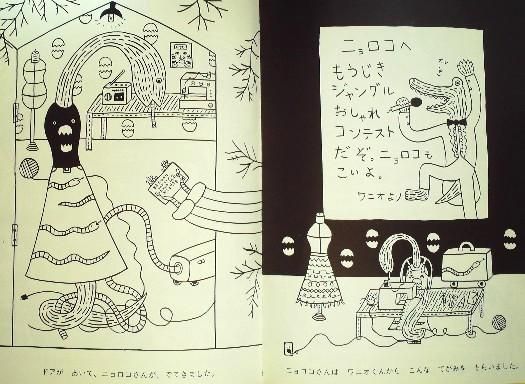 ドアが あいて、ニョロコさんが、でてきました。
ニョロコへ
もうじき
ジャングル
おしゃれ
コンテスト
だぞ。ニョロコも
こいよ。
ワニオより
ニョロコさんは ワニオくんから こんな てがみを もらいました。